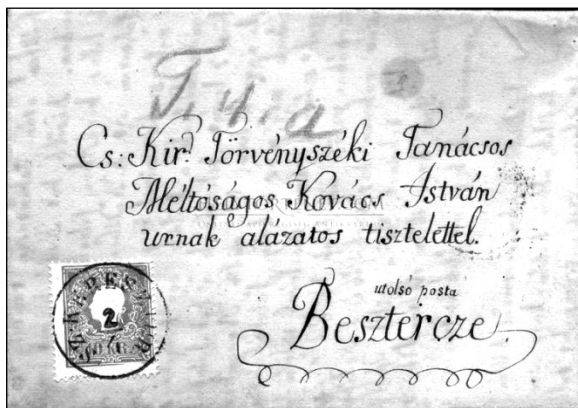 T. y. a
Cs: Kir? Törvényszéki Tanácsos
Méltóságos Kovács István
urnak alázatos tisztelettel.
utolsó posta
Besztercze
2